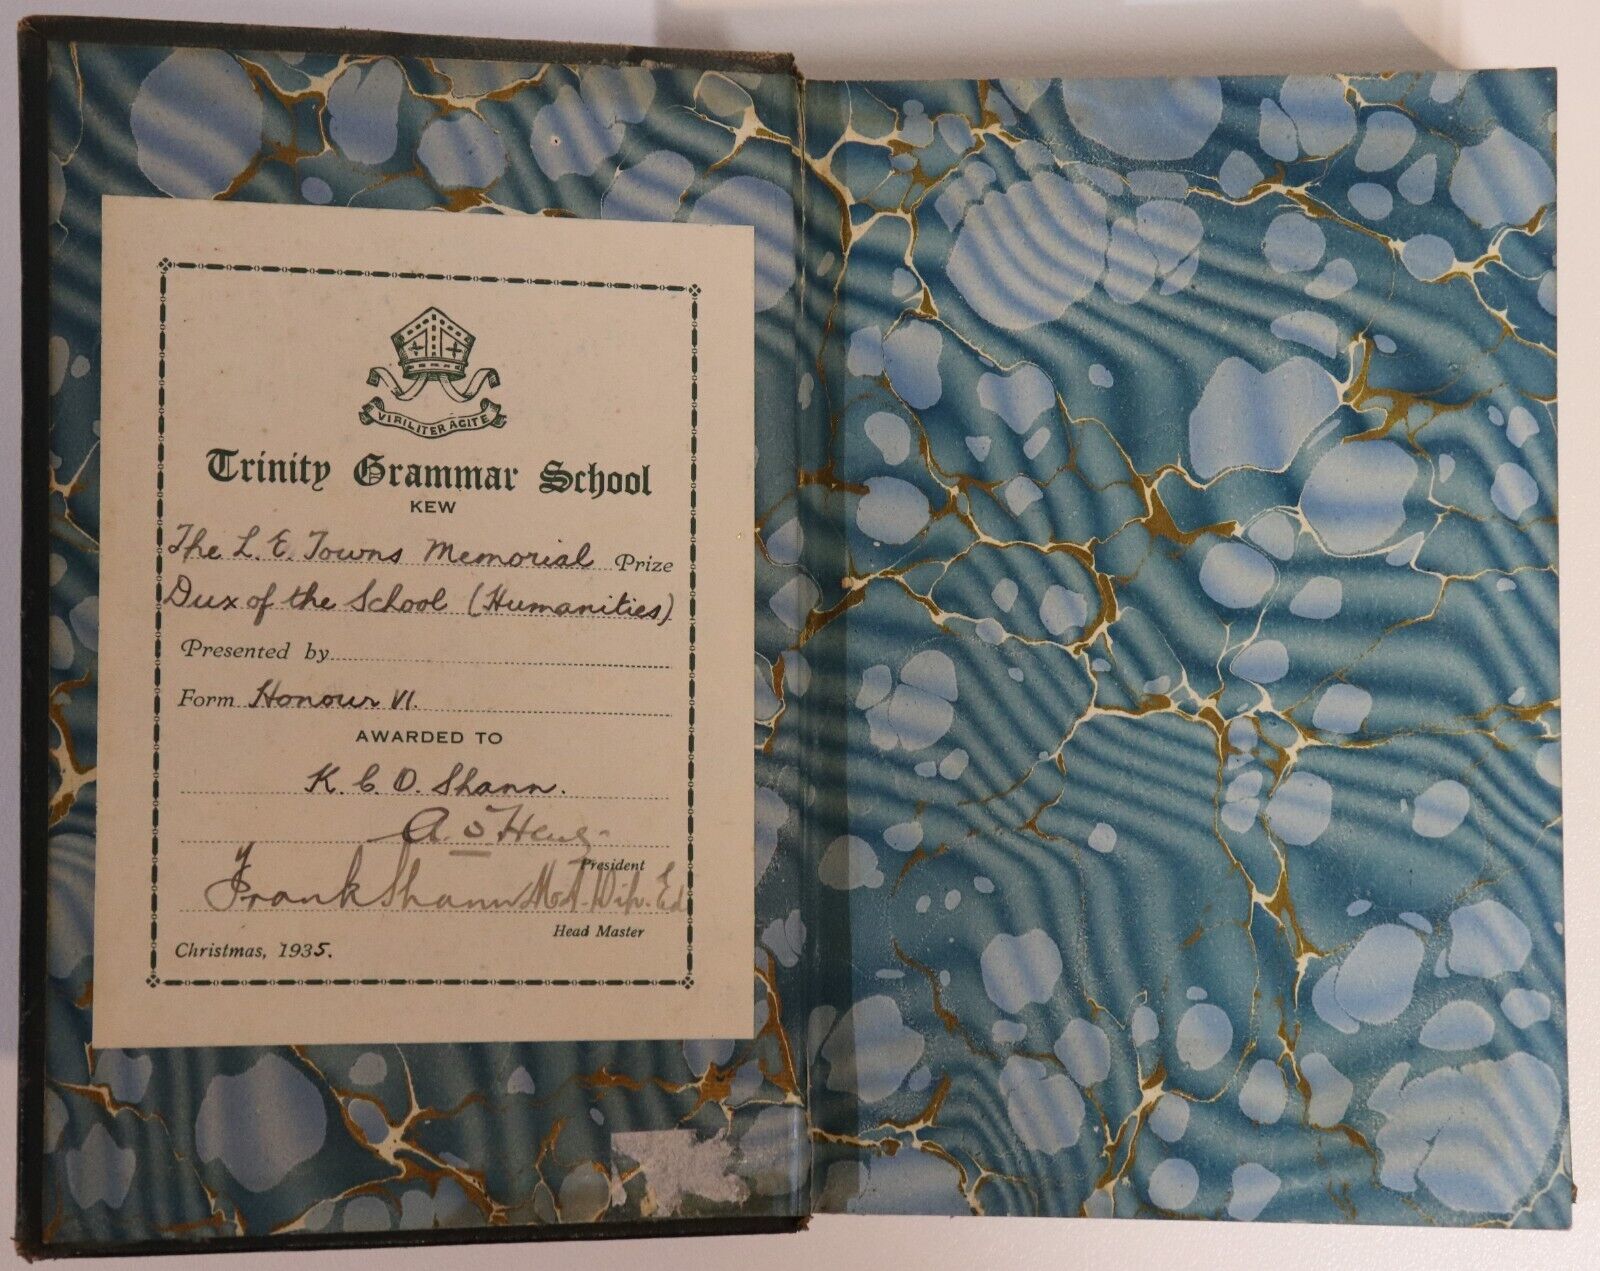 VIRILITER AGITE
Trinity Grammar School
KEW
The L. E. Towns Memorial Prize
Dux of the School (Humanities)
Presented by
Form Honour VI.
AWARDED TO
K. C. O. Shann.
A. S
President
Frank Shann M.A. Dip. Ed
Head Master
Christmas, 1935.